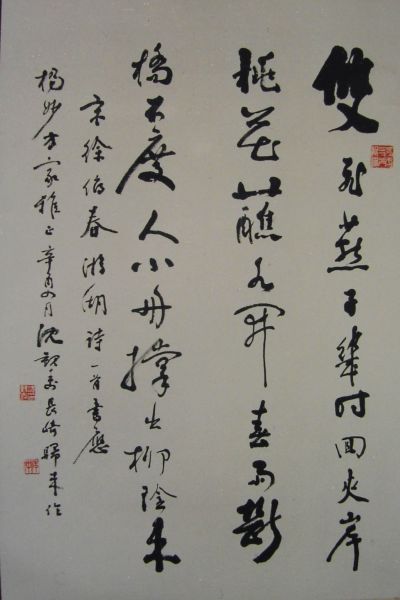 雙飛燕子幾时回夾岸
桃花蘸水開春雨斷
橋不度人小舟撑出柳陰来
宋徐俯春游湖詩一首書應
楊妙方家雅正辛酉四月沈觀壽長崎歸来作